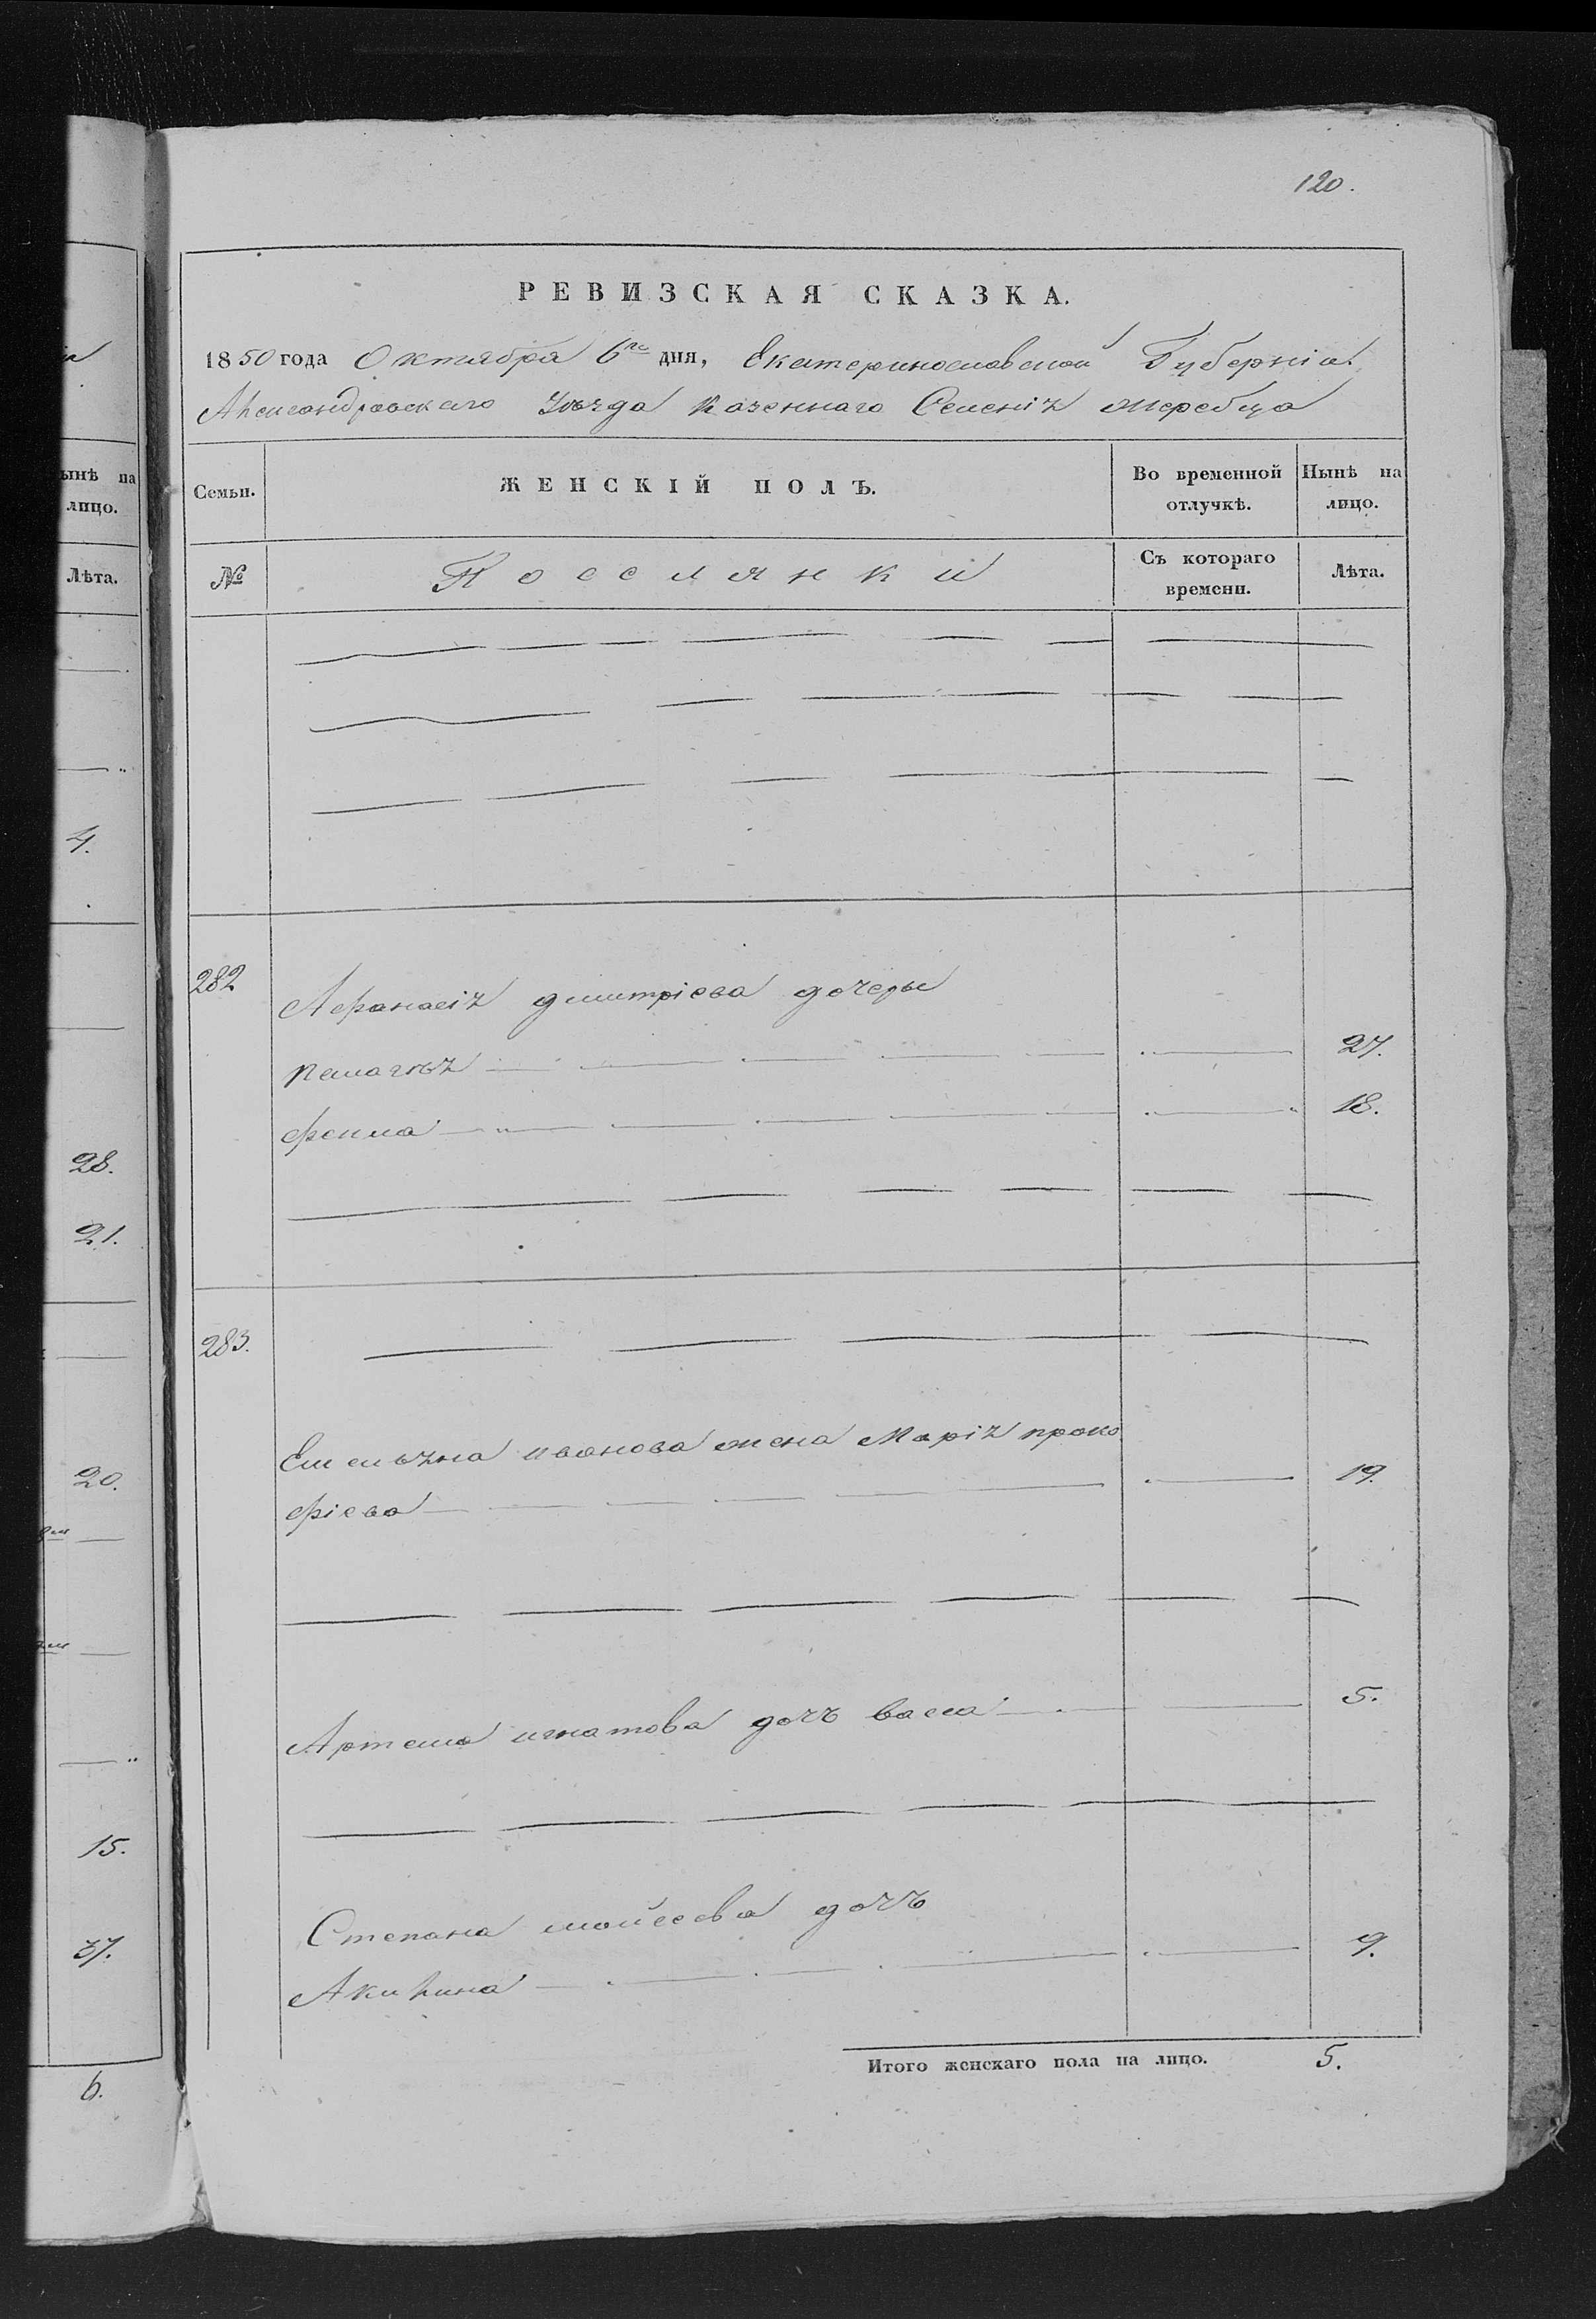 120.
РЕВИЗСКАЯ СКАЗКА.
1850 года Октября 6го дня, Екатеринославской Губерніи
Александровскаго Уѣзда Казеннаго Селенія жеребца
Семьи.
ЖЕНСКІЙ ПОЛЪ.
Во временной отлучкѣ.
Нынѣ на лицо.
№
Поселянки
Съ котораго времени.
Лѣта.
282
Афанасія дмитріева дочеры
пелагѣя 27.
фекла 18.
283.
Емельяна иванова жена Марія проко
фіева 19.
Артема игнатова дочъ васса 5.
Степана мойсеева дочъ
Акилина 9.
Итого женскаго пола на лицо. 5.
ынѣ на
лицо.
Лѣта.
4.
28.
21.
20.
15.
37.
6.